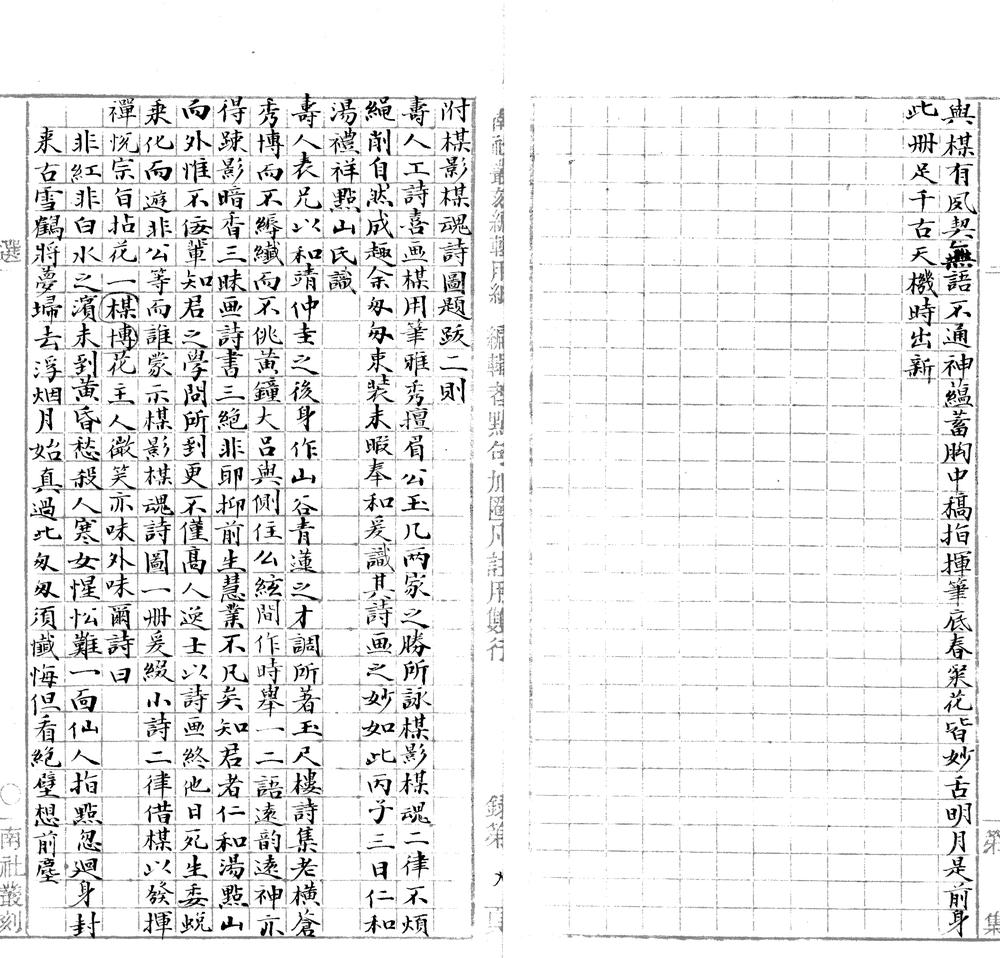 第
集
與楳有夙契無語不通神蘊蓄胸中稿指揮筆底春眾花皆妙舌明月是前身
此冊足千古天機時出新
南社叢刻編輯用紙 編輯者點句加圈凡註用雙行
附楳影楳魂詩圖題跋二則
壽人工詩喜画楳用筆雅秀擅眉公玉几两家之勝所詠楳影楳魂二律不煩
繩削自然成趣余匆匆束裝未暇奉和爰識其詩画之妙如此丙子三日仁和
湯禮祥點山氏識
壽人表兄以和靖仲圭之後身作山谷青蓮之才調所著玉尺樓詩集老橫蒼
秀博而不縟纖而不佻黃鐘大吕與側徍么絃間作時舉一二語遠韵遠神亦
得踈影暗香三昧画詩書三絕非耶抑前生慧業不凡矣知君者仁和湯點山
而外惟不佞輩知君之學問所到更不僅高人逸士以詩画終他日死生委蛻
乘化而遊非公等而誰蒙示楳影楳魂詩圖一冊爰綴小詩二律借楳以發揮
禪悦宗旨拈花一楳博花主人微笑亦味外味爾詩曰
非紅非白水之濱未到黃昏愁殺人寒女惺忪難一面仙人指點忽迴身封
来古雪鶴將夢埽去浮烟月始真過此匆匆須懺悔但看絕壁想前塵
選
南社叢刻